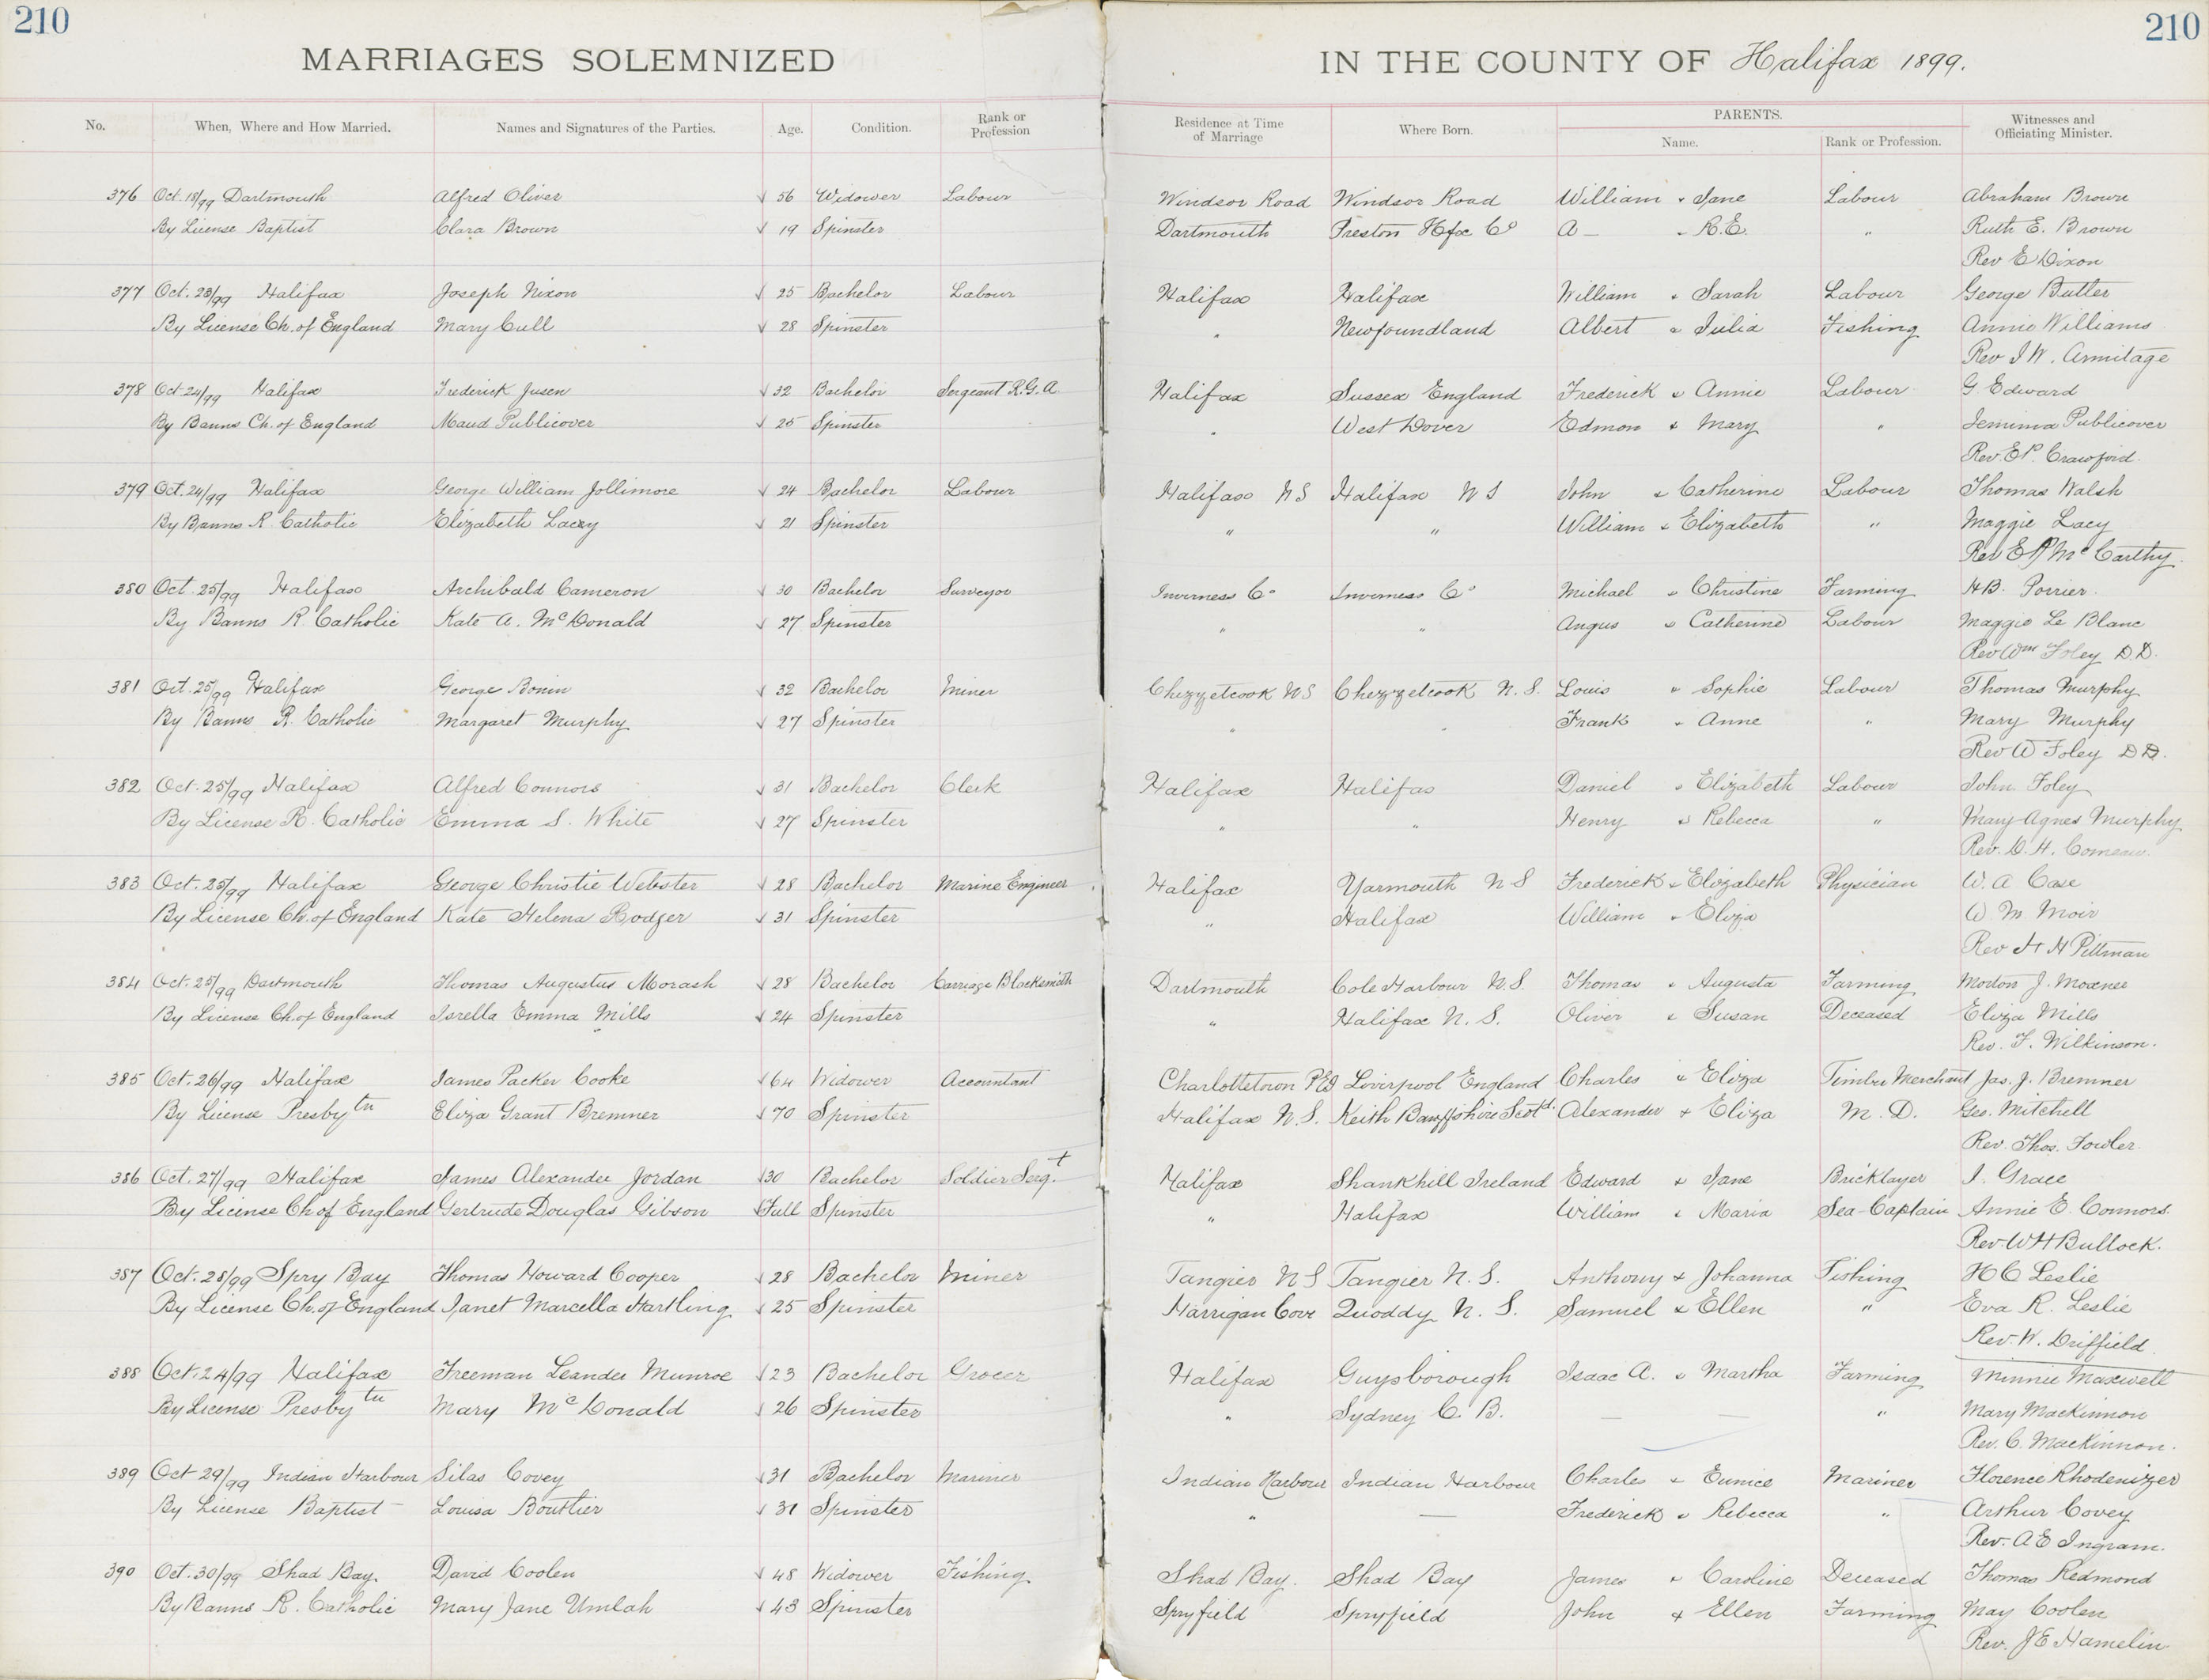 210 210
MARRIAGES SOLEMNIZED IN THE COUNTY OF Halifax 1899.
No. When, Where and How Married. Names and Signatures of the Parties. Age. Condition. Rank or Profession Residence at Time of Marriage Where Born. PARENTS. Name. Rank or Profession. Witnesses and Officiating Minister.
376 Oct. 18/99 Dartmouth Alfred Oliver √ 56 Widower Labour Windsor Road Windsor Road William & Jane Labour Abraham Brown
By License Baptist Clara Brown √ 19 Spinster Dartmouth Preston Hfx Co A— & R.E. " Ruth E. Brown
Rev E Dixon
377 Oct. 23/99 Halifax Joseph Nixon √ 25 Bachelor Labour Halifax Halifax William & Sarah Labour George Butler
By License Ch. of England Mary Cull √ 28 Spinster " Newfoundland Albert & Julia Fishing Annie Williams
Rev I W. Armitage
378 Oct 24/99 Halifax Frederick Jusen √ 32 Bachelor Sergeant R.G.A. Halifax Sussex England Frederick & Annie Labour G Edward
By Banns Ch. of England Maud Publicover √ 25 Spinster " West Dover Edmon & Mary " Jemima Publicover
Rev. E P. Crawford.
379 Oct. 24/99 Halifax George William Jollimore √ 24 Bachelor Labour Halifax N S Halifax N S John & Catherine Labour Thomas Walsh
By Banns R. Catholic Elizabeth Lacey √ 21 Spinster " " William & Elizabeth " Maggie Lacy
Rev E P Mc Carthy.
380 Oct. 25/99 Halifax Archibald Cameron √ 30 Bachelor Surveyor Inverness Co Inverness Co Michael & Christine Farming H.B. Poirier.
By Banns R. Catholic Kate A. McDonald √ 27 Spinster " " Angus & Catherine Labour Maggie Le Blanc
Rev Wm Foley D.D.
381 Oct. 25/99 Halifax George Bonin √ 32 Bachelor Miner Chezzetcook N S Chezzetcook N. S. Louis & Sophie Labour Thomas Murphy
By Banns R. Catholic Margaret Murphy √ 27 Spinster " " Frank & Anne " Mary Murphy
Rev W Foley D D.
382 Oct. 25/99 Halifax Alfred Connors √ 31 Bachelor Clerk Halifax Halifax Daniel & Elizabeth Labour John Foley
By License R. Catholic Emma S. White √ 27 Spinster " " Henry & Rebecca " Mary Agnes Murphy
Rev. D. H. Comeau.
383 Oct. 25/99 Halifax George Christie Webster √ 28 Bachelor Marine Engineer Halifax Yarmouth N S Frederick & Elizabeth Physician W. A Case
By License Ch. of England Kate Helena Rodger √ 31 Spinster " Halifax William & Eliza W M Moir
Rev H H Pittman
384 Oct. 25/99 Dartmouth Thomas Augustus Morash √ 28 Bachelor Carriage Blacksmith Dartmouth Cole Harbour N.S. Thomas & Augusta Farming Morton J. Moxnee
By License Ch. of England Isrella Emma Mills √ 24 Spinster " Halifax N. S. Oliver & Susan Deceased Eliza Mills
Rev. F. Wilkinson.
385 Oct. 26/99 Halifax James Packer Cooke √ 64 Widower Accountant Charlottetown PEI Liverpool England Charles & Eliza Timber Merchant Jas. J. Bremner
By License Presbytn Eliza Grant Bremner √ 70 Spinster Halifax N.S. Keith Banffshire Scotd. Alexander & Eliza M. D. Geo. Mitchell
Rev. Thos. Fowler.
386 Oct. 27/99 Halifax James Alexander Jordan √ 30 Bachelor Soldier Sergt. Halifax Shankhill Ireland Edward & Jane Bricklayer I. Grace
By License Ch of England Gertrude Douglas Gibson √ Full Spinster " Halifax William & Maria Sea-Captain Annie E. Connors.
Rev. W H Bullock.
387 Oct. 28/99 Spry Bay Thomas Howard Cooper √ 28 Bachelor Miner Tangier N S Tangier N. S. Anthony & Johanna Fishing H C Leslie
By License Ch. of England Janet Marcella Hartling √ 25 Spinster Harrigan Cove Quoddy N. S. Samuel & Ellen " Eva R. Leslie
Rev. W. Driffield.
388 Oct. 24/99 Halifax Freeman Leander Munroe √ 23 Bachelor Grocer Halifax Guysborough Isaac A. & Martha Farming Minnie Maxwell
By License Presbytn Mary McDonald √ 26 Spinster " Sydney C. B. — — " Mary MacKinnon
Rev. C. MacKinnon.
389 Oct 29/99 Indian Harbour Silas Covey √ 31 Bachelor Mariner Indian Harbour Indian Harbour Charles & Eunice Mariner Florence Rhodenizer
By License Baptist Louisa Boutlier √ 31 Spinster " — Frederick & Rebecca " Arthur Covey
Rev. A E Ingram.
390 Oct. 30/99 Shad Bay. David Coolen √ 48 Widower Fishing Shad Bay. Shad Bay James & Caroline Deceased Thomas Redmond
By Banns R. Catholic Mary Jane Umlah √ 43 Spinster Spryfield Spryfield John & Ellen Farming May Coolen
Rev. J E Hamelin